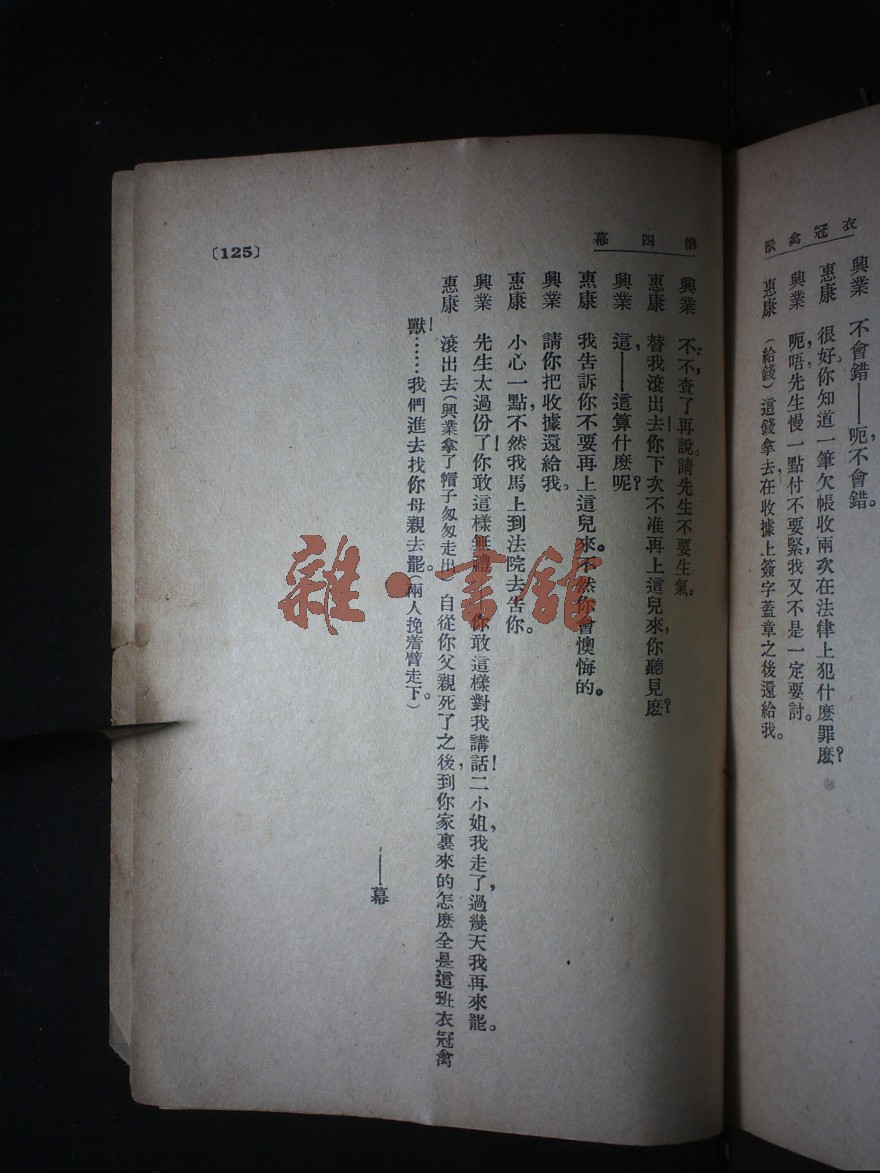 衣冠禽獸
興業　不會錯——呃，不會錯。
惠康　很好。你知道一筆欠帳收兩次在法律上犯什麽罪麽？
興業　呃，唔，先生慢一點付不要緊，我又不是一定要討。
惠康　（給錢）這錢拿去，在收據上簽字蓋章之後還給我。
第四幕
興業　不，不，查了再說。請先生不要生氣。
惠康　替我滾出去！你下次不准再上這兒來，你聽見麽？
興業　這，——這算什麽呢？
惠康　我告訴你不要再上這兒來。不然你會懊悔的。
興業　請你把收據還給我。
惠康　小心一點，不然我馬上到法院去告你。
興業　先生太過份了！你敢這樣無禮！你敢這樣對我講話！二小姐，我走了，過幾天我再來罷。
惠康　滾出去（興業拿了帽子匆匆走出）自從你父親死了之後，到你家裏來的怎麽全是這班衣冠禽
獸！……我們進去找你母親去罷。（兩人挽着臂走下。）
——幕
（125）
雜·書館